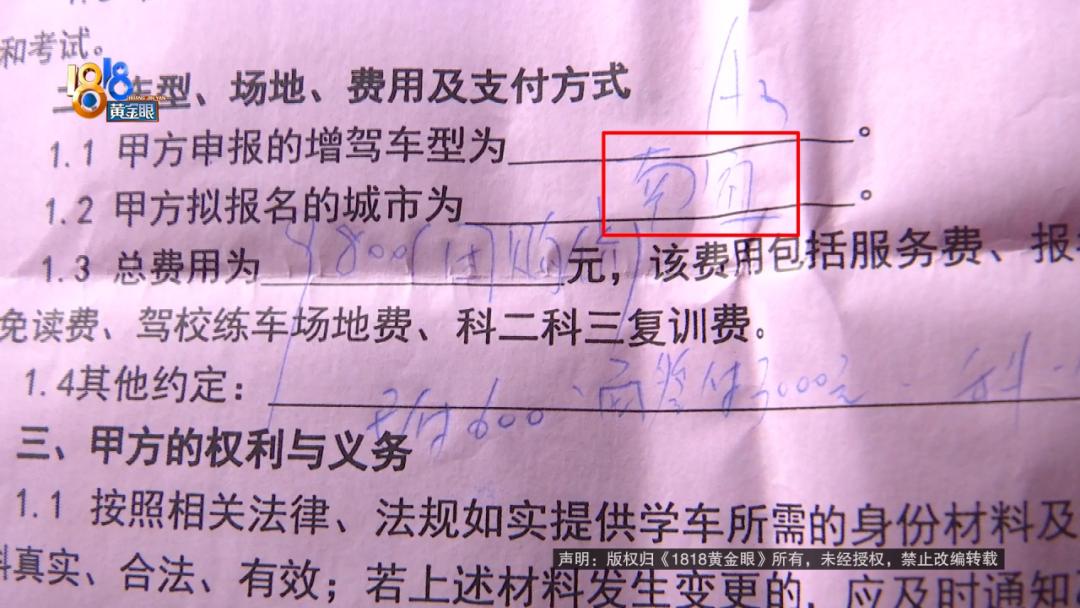 和考试。
1818
黄金眼
车型、场地、费用及支付方式
A2
1.1 甲方申报的增驾车型为 。
1.2 甲方拟报名的城市为 南宜 。
1.3 总费用为 9800(团购价) 元，该费用包括服务费、报
免读费、驾校练车场地费、科二科三复训费。
1.4其他约定： 已付600 面签付3000元 . 科
三、甲方的权利与义务
1.1 按照相关法律、法规如实提供学车所需的身份材料及
料真实、合法、有效；若上述材料发生变更的，应及时通知
声明：版权归《1818黄金眼》所有，未经授权，禁止改编转载